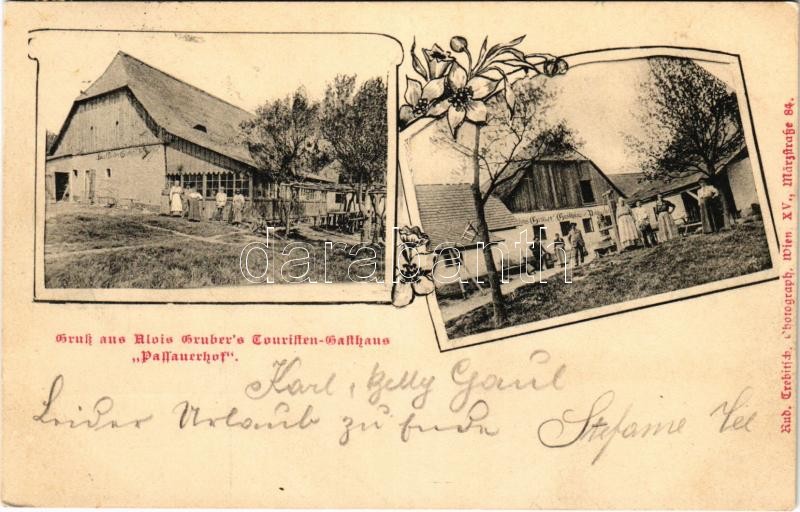 Gruß aus Alois Gruber's Touristen-Gasthaus
„Passauerhof".
Karl, Gaul
Leider Urlaub zu Ende Stefanie
Rud. Trebitsch, Photograph, Wien, XV., Märzstraße 84.
darabanth.com